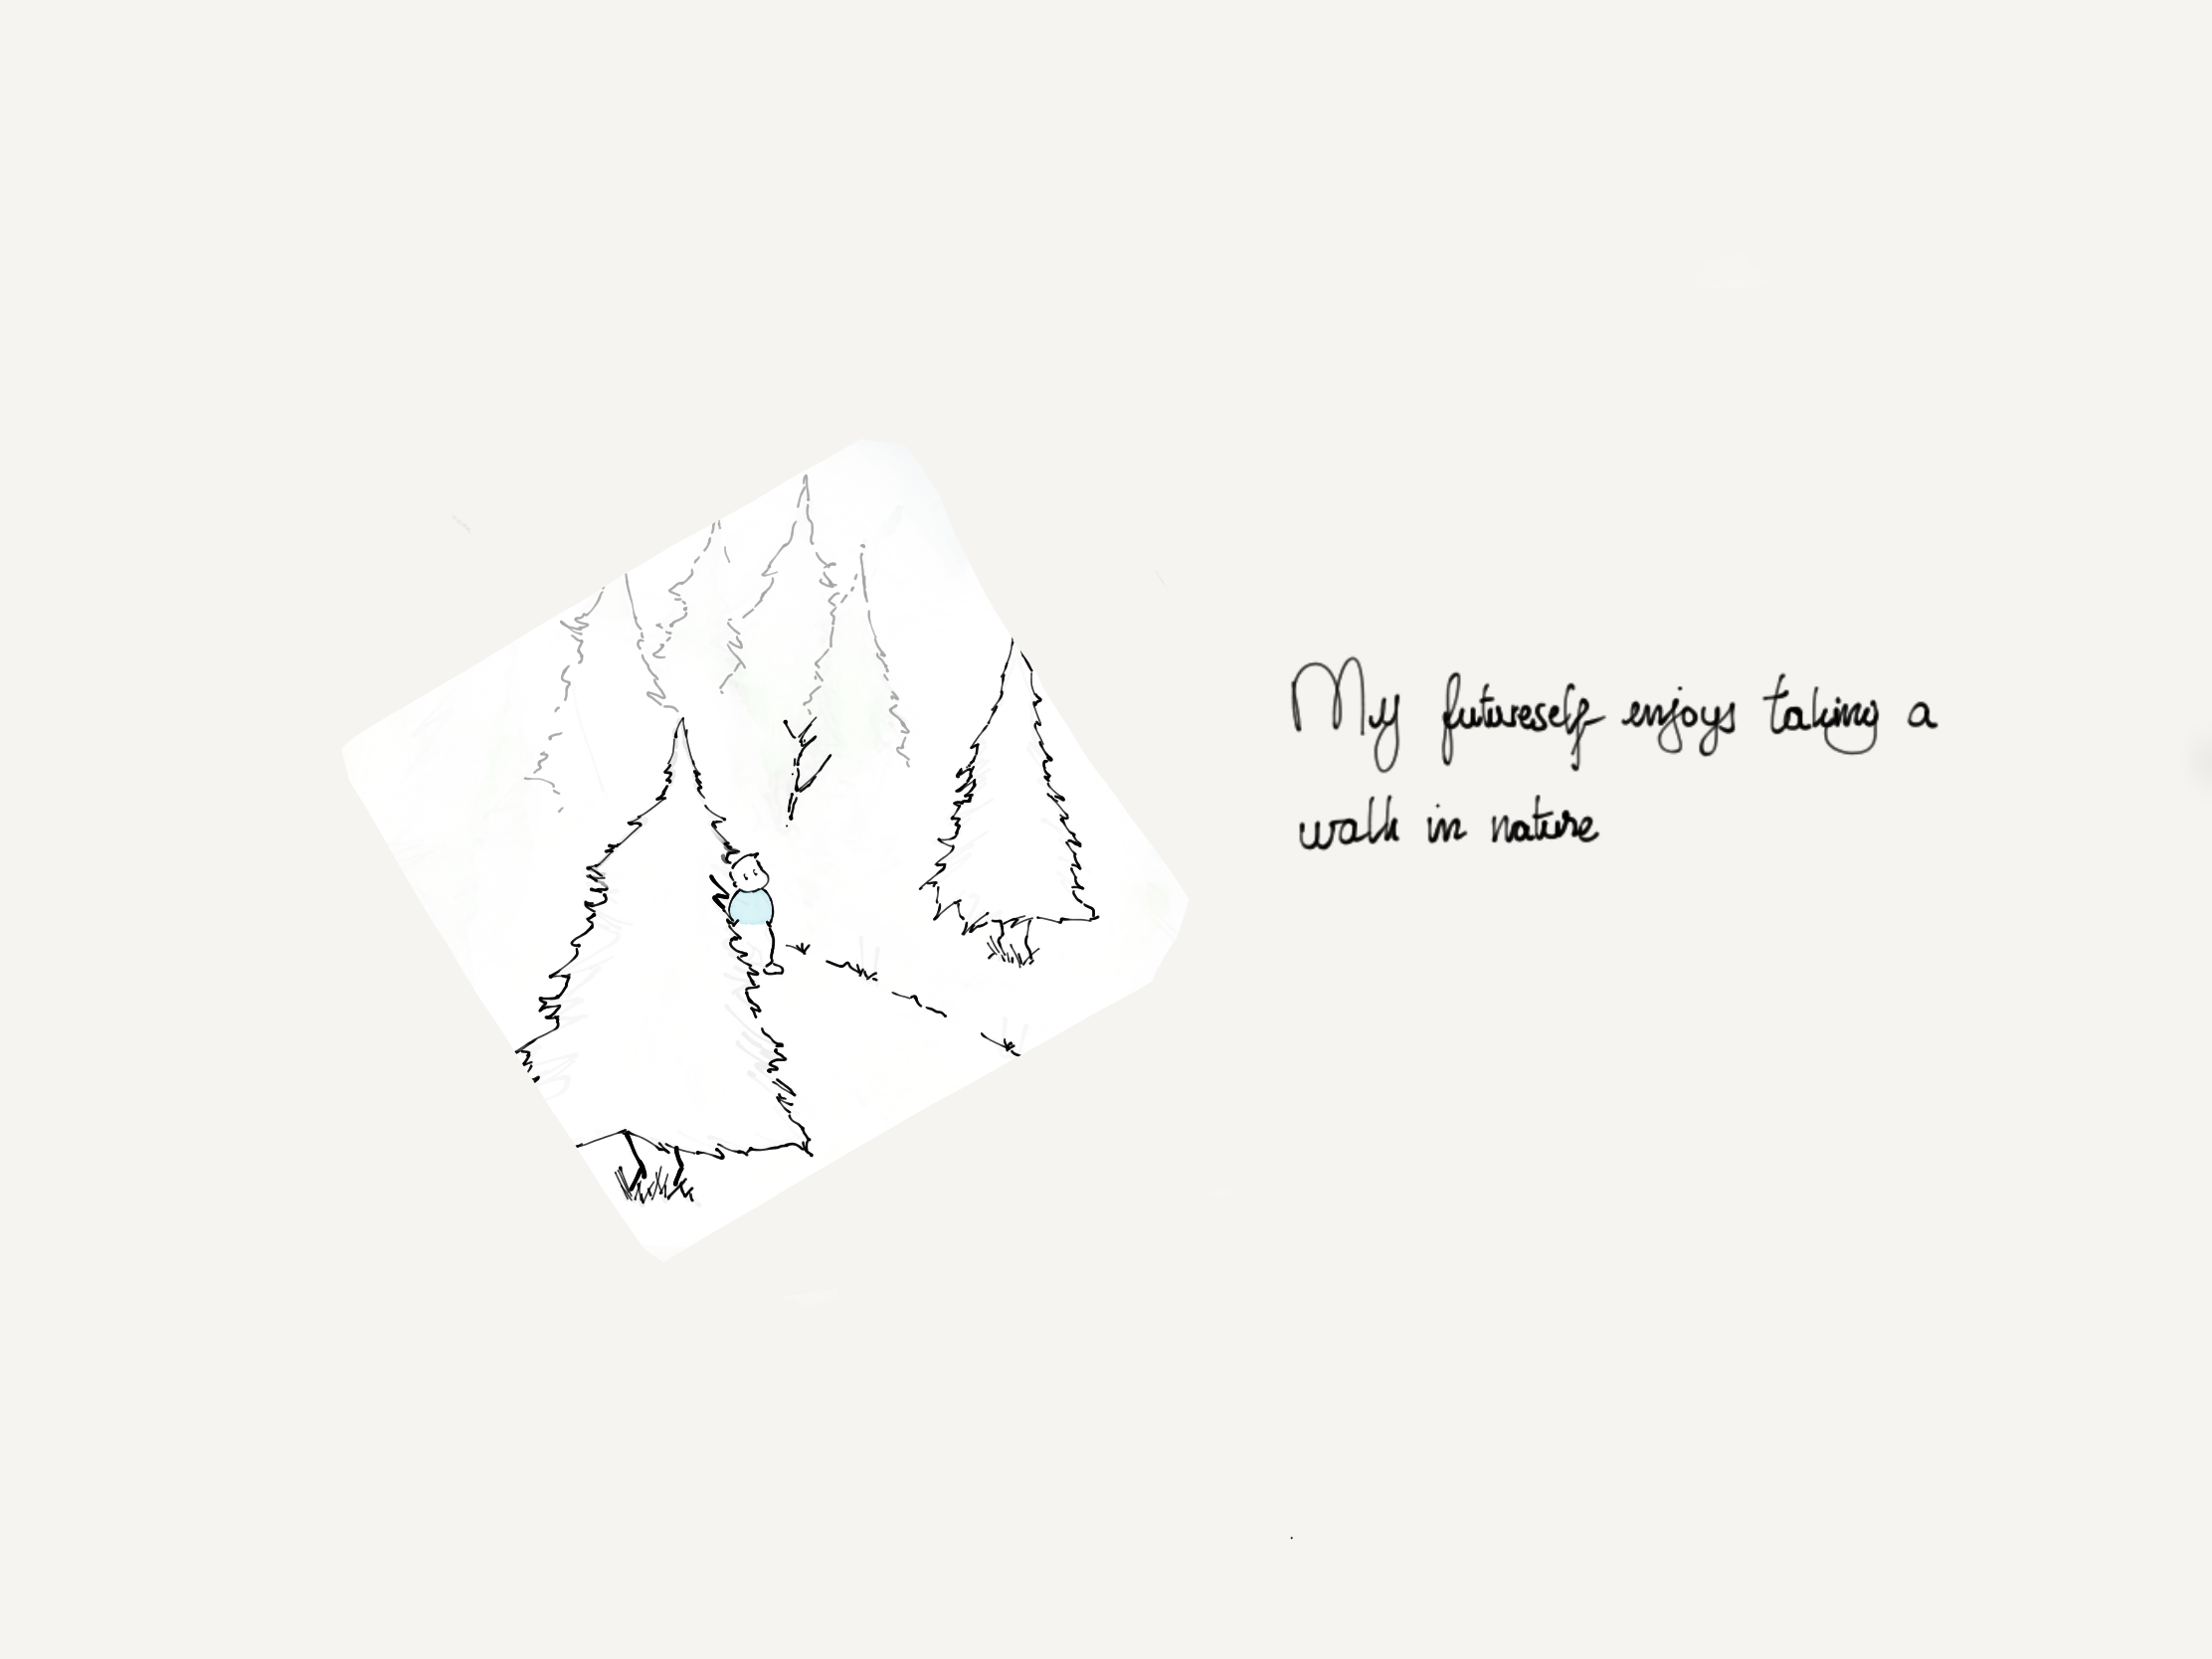 My futureself enjoys taking a
walk in nature